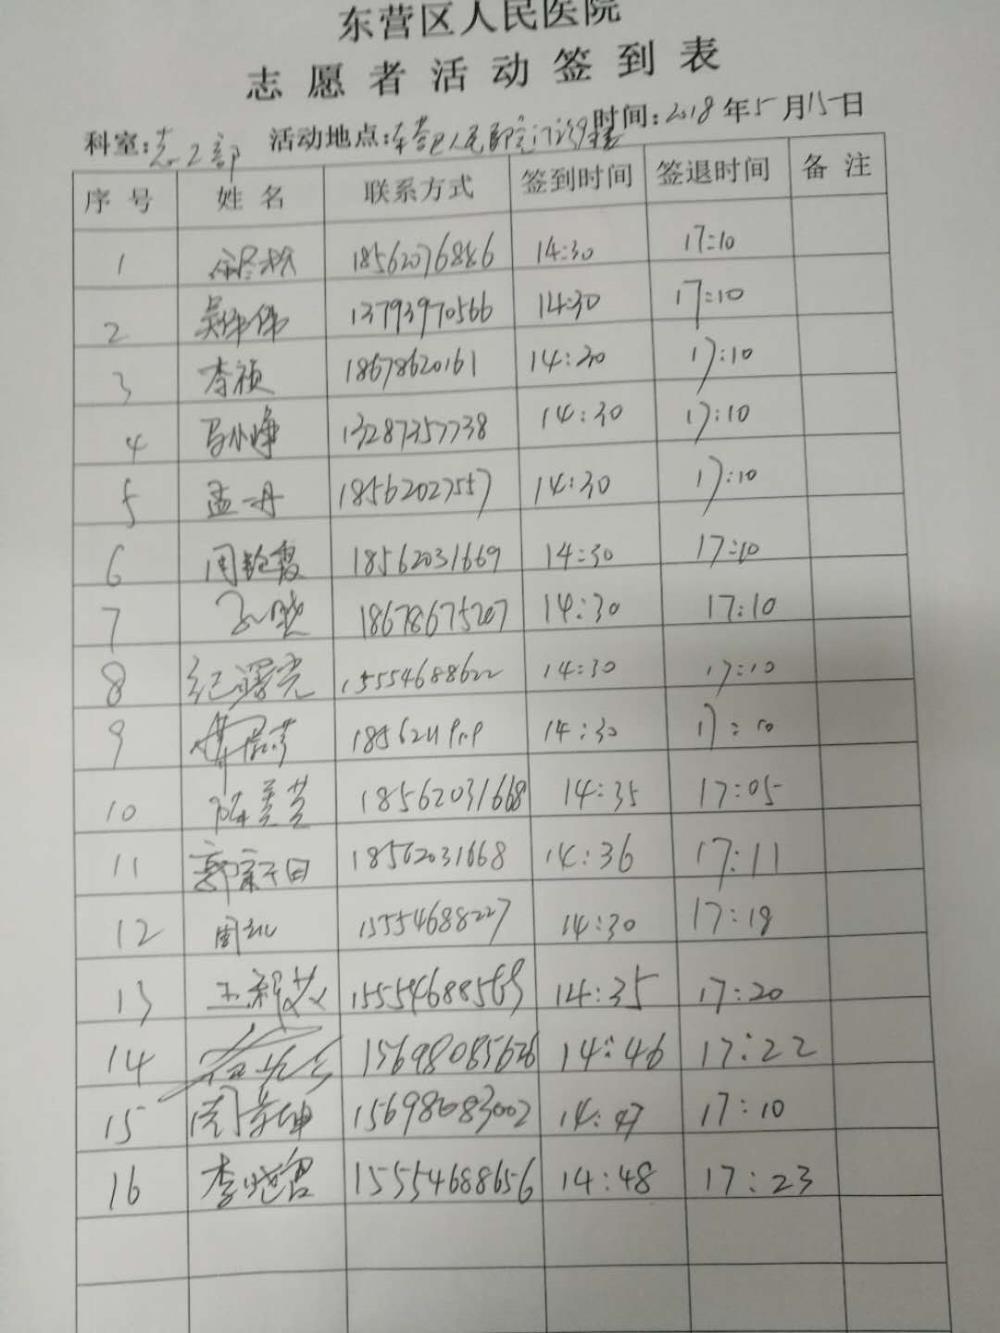 东营区人民医院
志愿者活动签到表
科室:志工部 活动地点:东营区人民医院门诊楼 时间:2018年5月15日
序号 姓名 联系方式 签到时间 签退时间 备注
1 18562076886 14:30 17:10
2 吴伟伟 13793970566 14:30 17:10
3 李祯 18678620161 14:30 17:10
4 马小峥 13287357738 14:30 17:10
5 孟丹 18562027557 14:30 17:10
6 周艳霞 18562031669 14:30 17:10
7 18678675207 14:30 17:10
8 纪曙光 15554688622 14:30 17:10
9 14:30 17:10
10 陈美芸 18562031668 14:35 17:05
11 18562031668 14:36 17:11
12 周红 15554688227 14:30 17:19
13 15554688569 14:35 17:20
14 15698085626 14:46 17:22
15 15698083002 14:47 17:10
16 李晓宫 15554688656 14:48 17:23